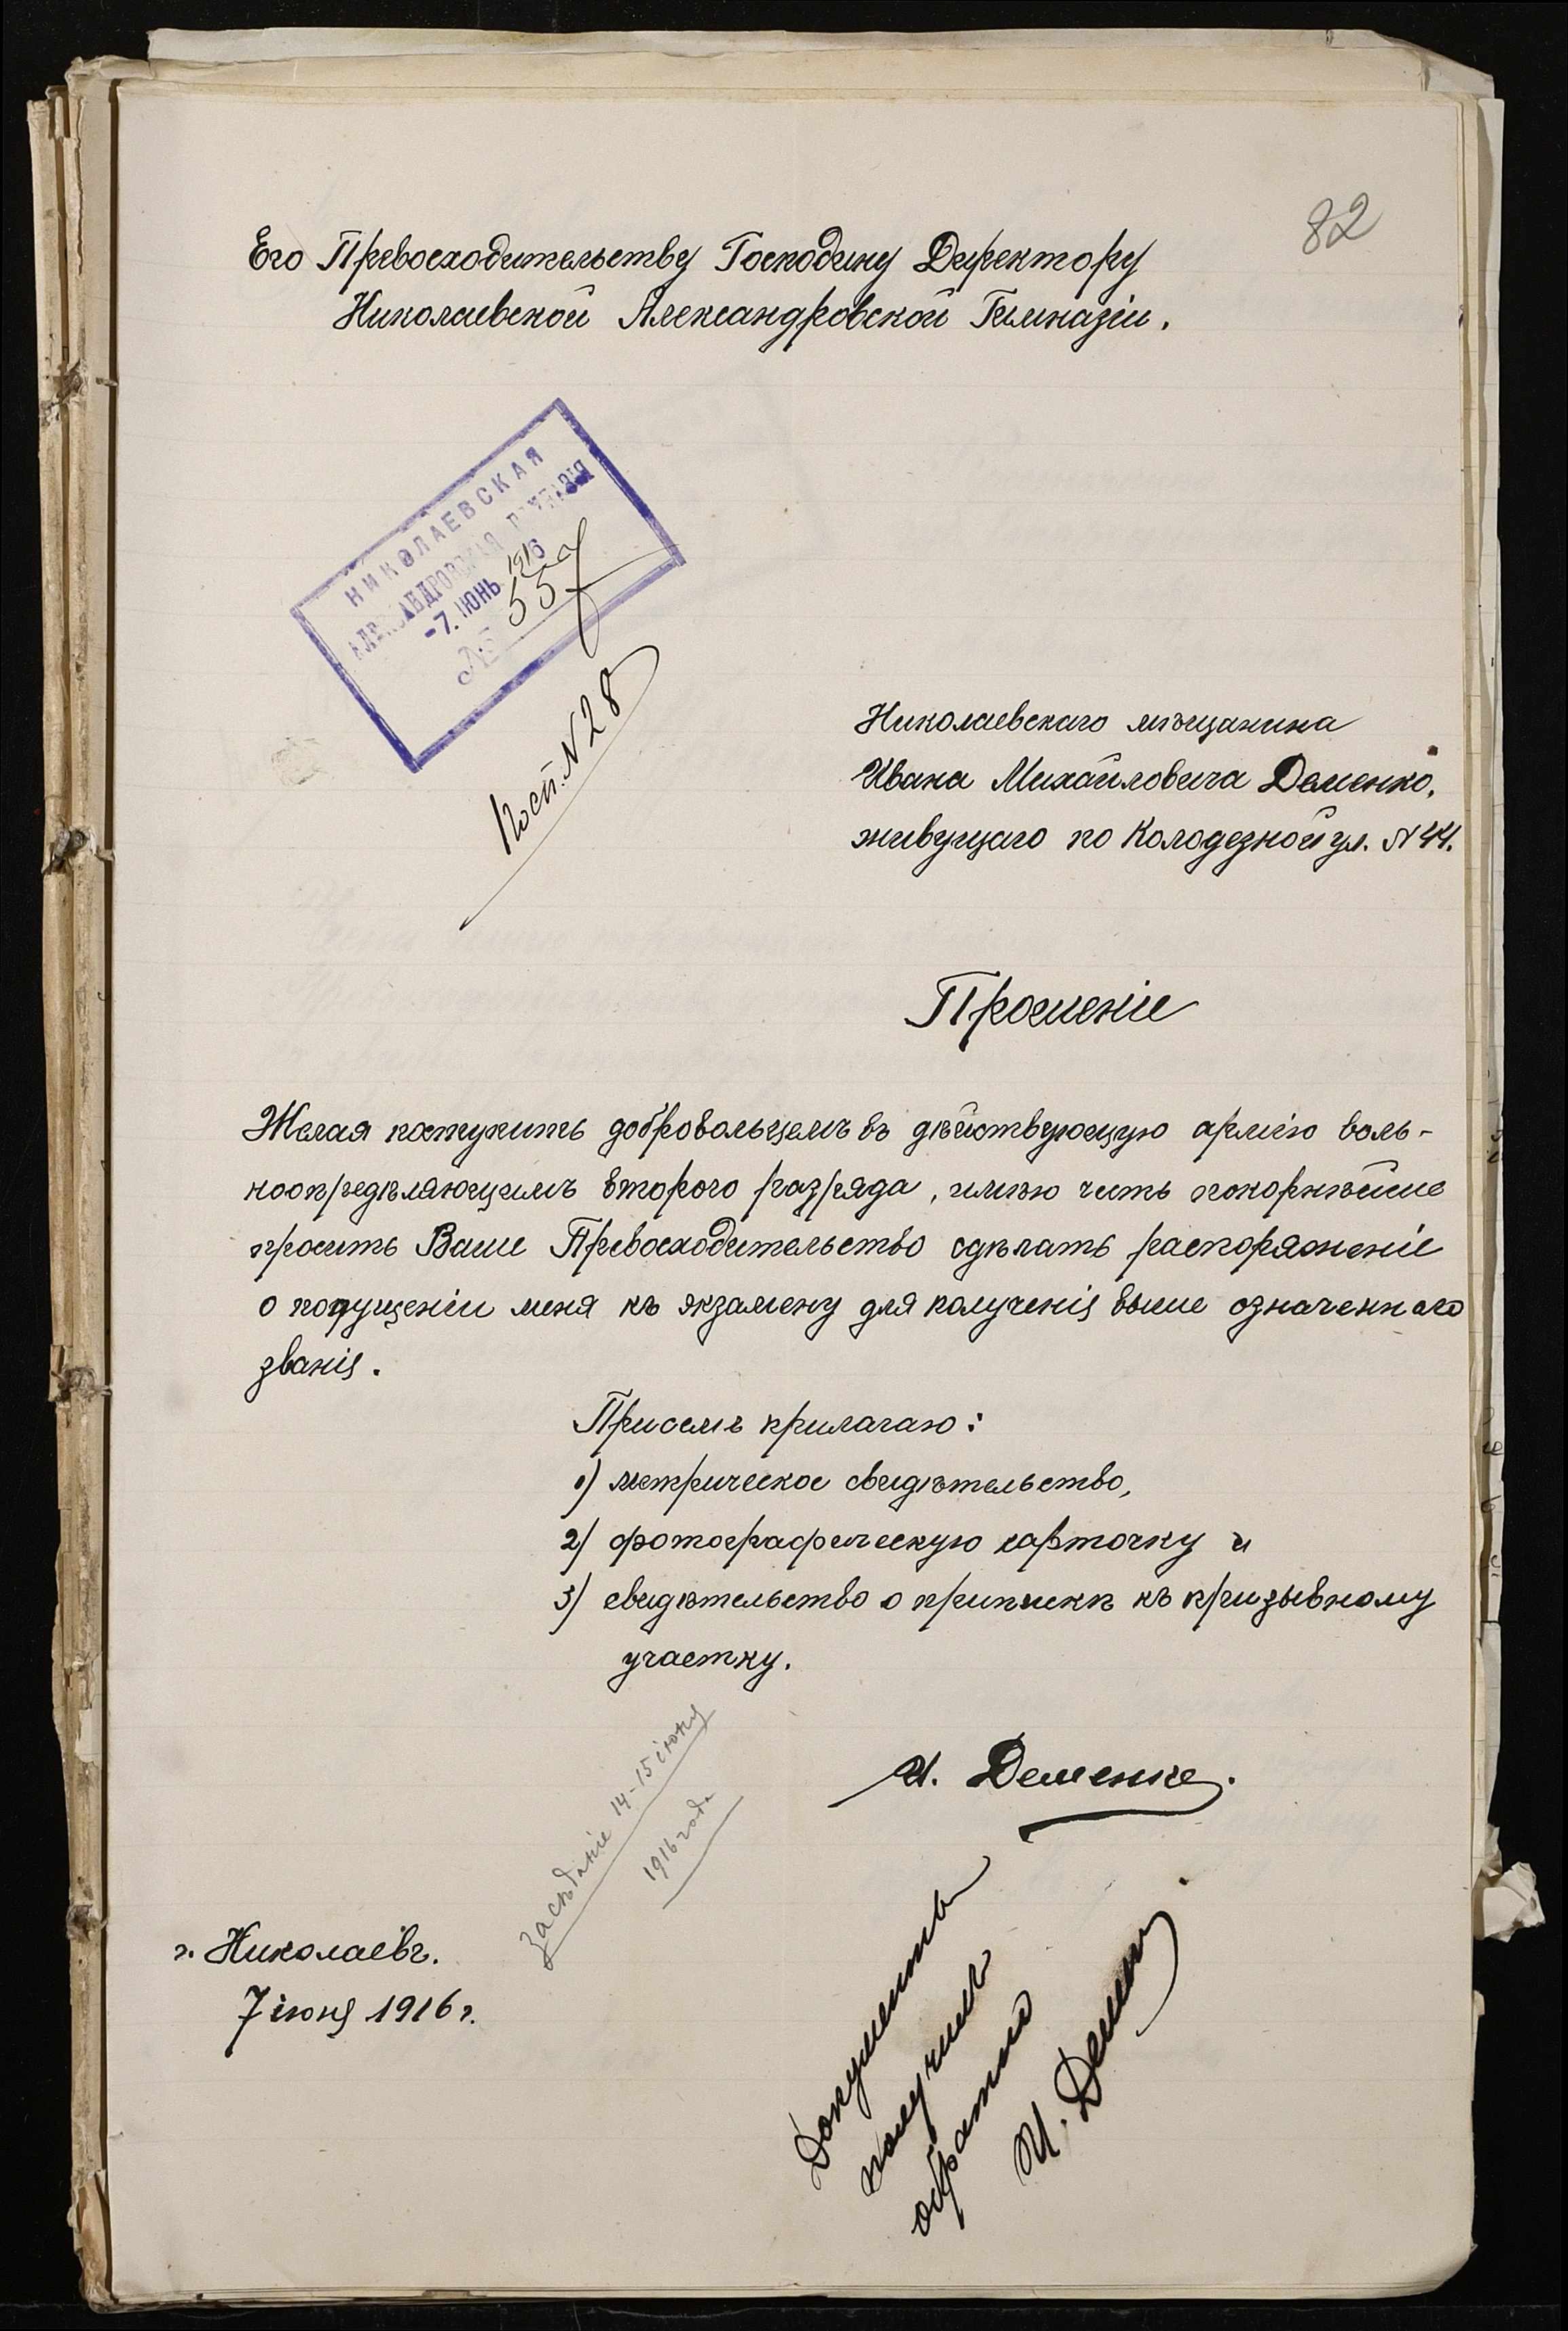 82
Его Превосходительству Господину Директору
Николаевской Александровской Гимназіи.
НИКОЛАЕВСКАЯ
АЛЕКСАНДРОВСКАЯ ГИМНАЗІЯ
-7. ІЮНЬ 1916
№ 557
Пост. N 28
Николаевскаго мѣщанина
Ивана Михайловича Деменко,
живущаго по Колодезной ул. N 44.
Прошеніе
Желая поступить добровольцемъ въ дѣйствующую армію воль-
ноопредѣляющимъ второго разряда, имѣю честь покорнѣйше
просить Ваше Превосходительство сдѣлать распоряженіе
о допущеніи меня къ экзамену для полученія выше означеннаго
званія.
При семъ прилагаю:
1) метрическое свидѣтельство,
2) фотографическую карточку и
3) свидѣтельство о припискѣ къ призывному
участку.
И. Деменко.
Засѣданіе 14-15 іюня
1916 года
г. Николаевъ.
7 іюня 1916 г.
Документы
получилъ
обратно
И. Деменко